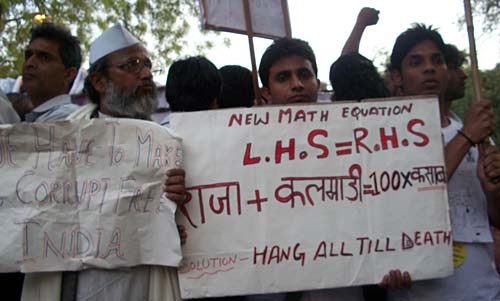 HAVE TO MAKE
CORRUPT FREE
INDIA
NEW MATH EQUATION
L.H.S=R.H.S
राजा + कलमाडी=100xकसाब
SOLUTION- HANG ALL TILL DEATH